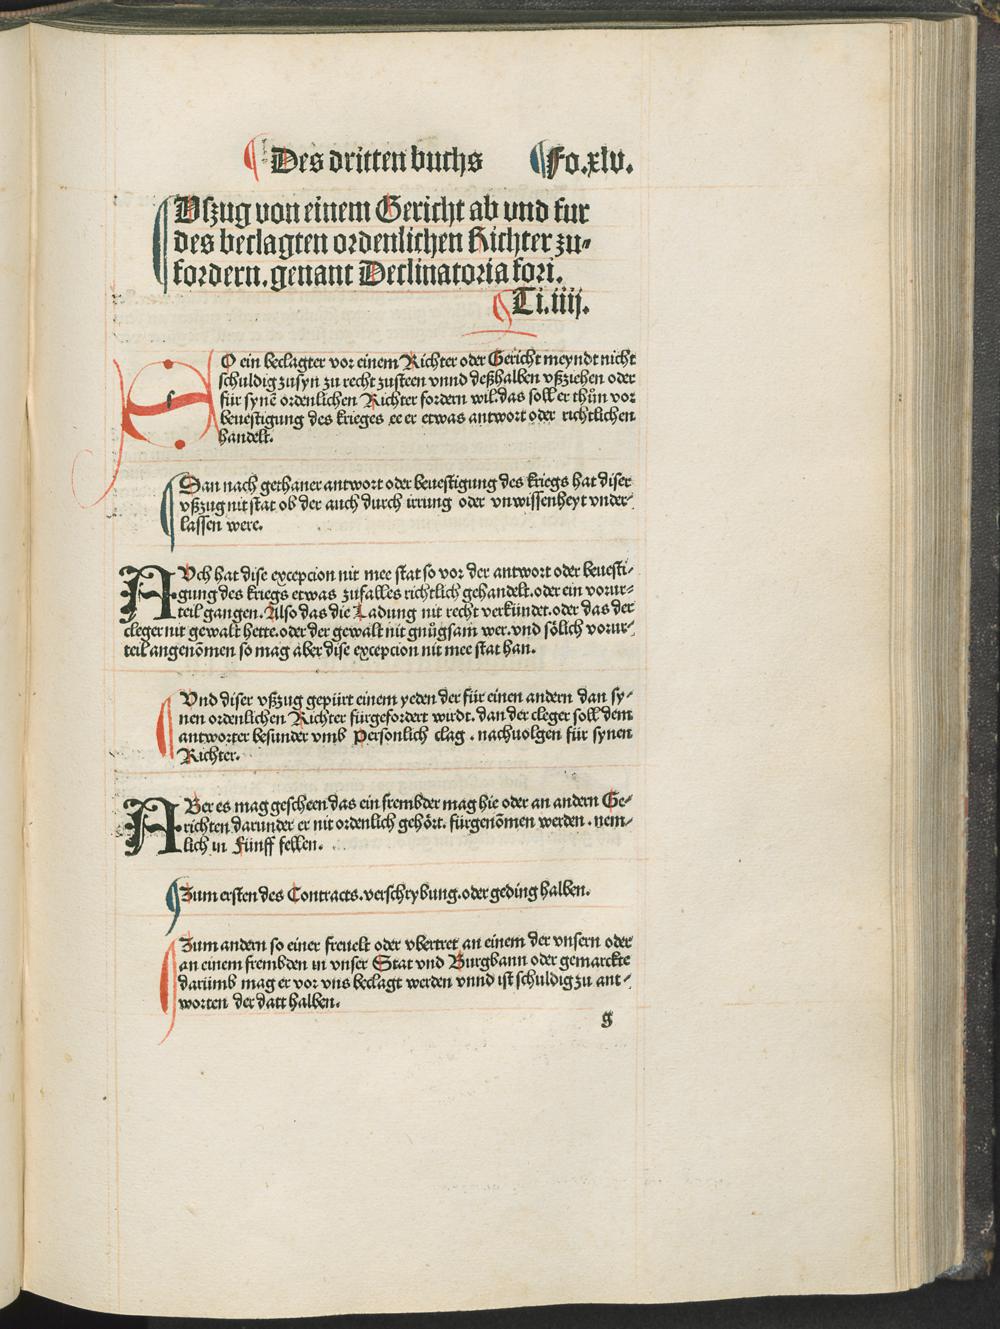 Des dritten buchs Fo.xlv.
Vszug von einem Gericht ab vnd fur
des beclagten ordenlichen Richter zu-
fordern. genant Declinatoria fori.
Ti.iiij.
SO ein beclagter vor einem Richter oder Gericht meyndt nicht
schuldig zusyn zu recht zusteen vnnd deßhalben vßziehen oder
für synē ordenlichen Richter fordern wil. das soll er thün vor
beuestigung des krieges ee er etwas antwort oder richtlichen
handelt.
Dan nach gethaner antwort oder beuestigung des kriegs hat diser
vßzug nit stat ob der auch durch irrung oder vnwissenheyt vnder-
lassen were.
AUch hat dise excepcion nit mee stat so vor der antwort oder beuesti-
gung des kriegs etwas zufalles richtlich gehandelt. oder ein vorur-
teil gangen. Also das die Ladung nit recht verkündet. oder das der
cleger nit gewalt hette. oder der gewalt nit gnůgsam wer. vnd sölich vorur-
teil angenōmen so mag aber dise excepcion nit mee stat han.
Vnd diser vßzug gepürt einem yeden der für einen andern dan sy-
nen ordenlichen Richter fürgefordert wirdt. dan der cleger soll dem
antworter besunder vmb personlich clag. nachuolgen für synen
Richter.
ABer es mag gescheen das ein frembder mag hie oder an andern Ge-
richten darunder er nit ordenlich gehört. fürgenōmen werden. nem-
lich in Fünff fellen.
Zum ersten des Contracts. verschrybung. oder geding halben.
Zum andern so einer freuelt oder vbertret an einem der vnsern oder
an einem frembden in vnser Stat vnd Burgbann oder gemarckte
darümb mag er vor vns beclagt werden vnnd ist schuldig zu ant-
worten der datt halben.
g